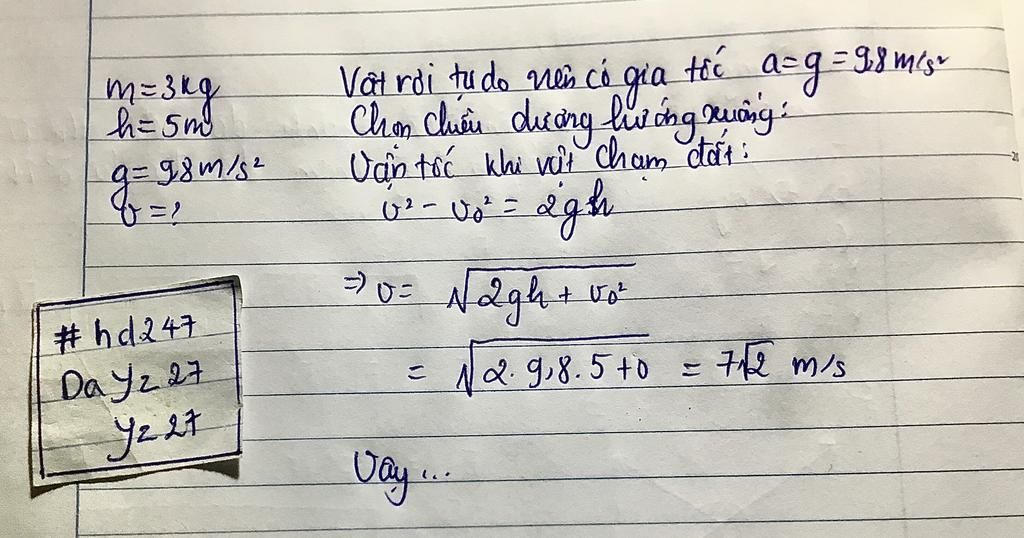 m = 3kg
h = 5m
g = 9,8 m/s²
v = ?
Vật rơi tự do nên có gia tốc a = g = 9,8 m/s²
Chọn chiều dương hướng xuống:
Vận tốc khi vật chạm đất:
v² - v₀² = 2gh
=> v = √(2gh + v₀²)
= √(2. 9,8. 5 + 0) = 7√2 m/s
Vậy ...
# hd247
Dayz27
yz27